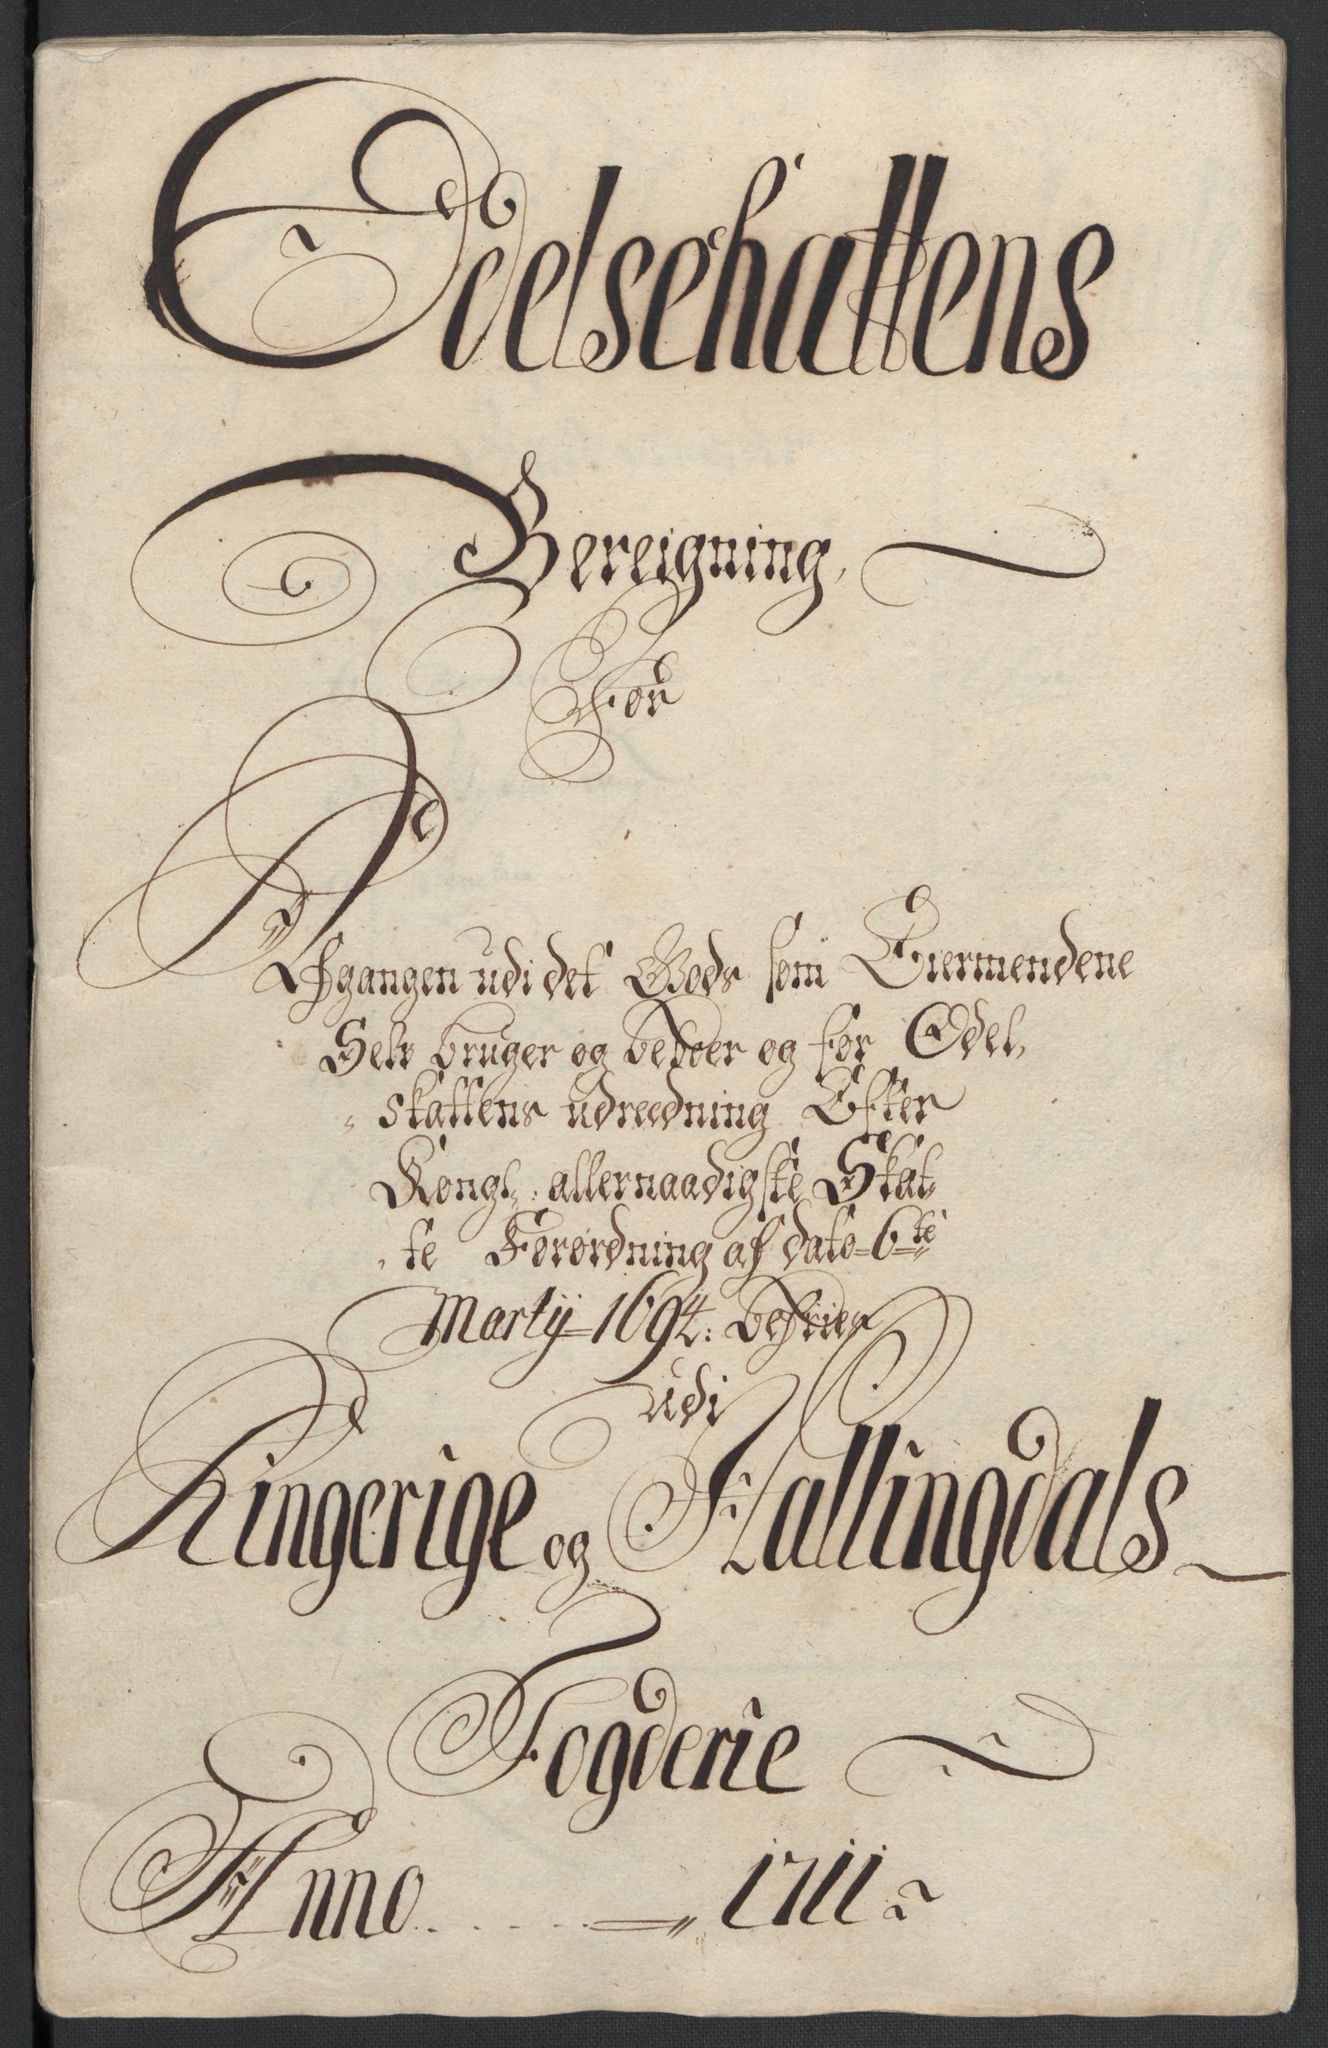 Odelschattens
Bereigning,
For
Afgangen udi det Gods som Eiermendene
Selv bruger og beboer og for Odel,
skattens udreedning Efter
Kongl: allernaadigste Skat,
te Forordning af dato 6te
Martij 1694: befries
udi
Ringerige og Hallingdals
Fogderie
Anno 1711